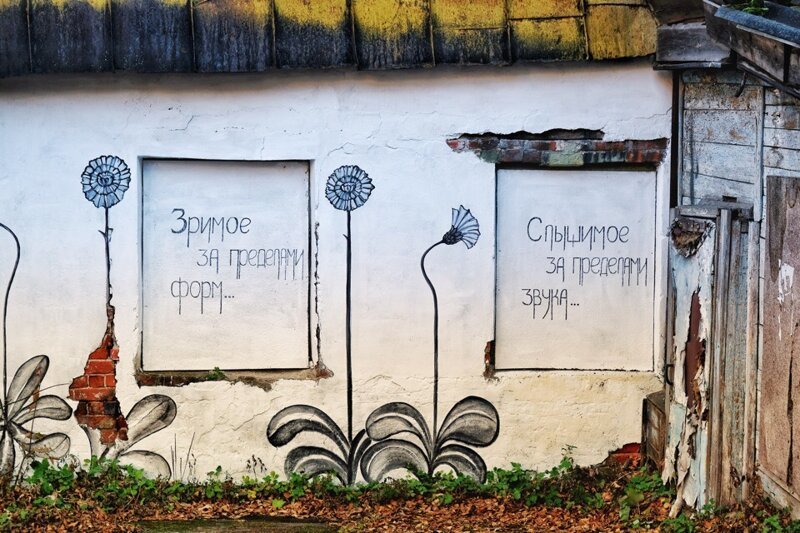 Зримое
за пределами
форм...
Слышимое
за пределами
звука...